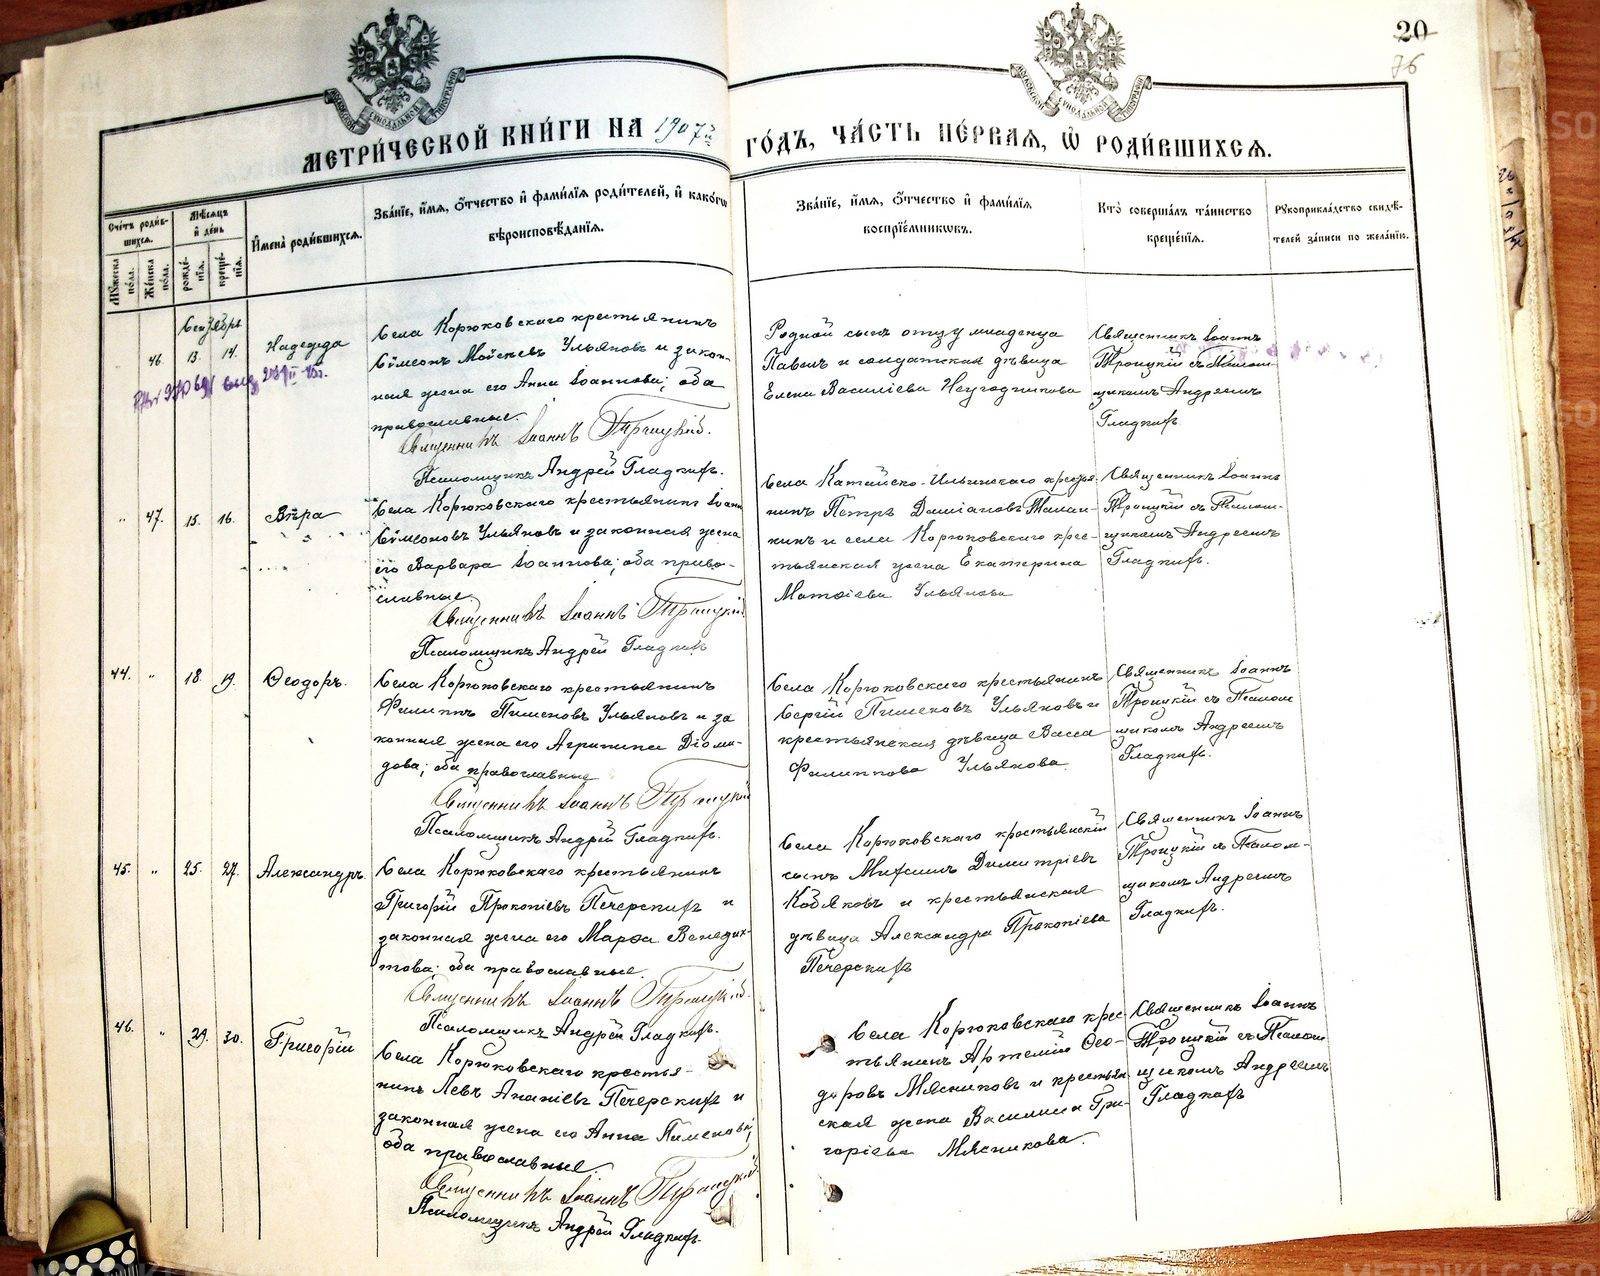 20
76
МЕТРИ́ЧЕСКОЙ КНИ́ГИ НА 1907й ГО́ДЪ, ЧА́СТЬ ПЕ́РВАЯ, Ѡ РОДИ́ВШИХСЯ.
Сче́тъ роди́вшихся.
Му́жеска по́ла.
Же́нска по́ла.
Мѣ́сяцъ и де́нь
рожде́нїя.
креще́нїя.
И҆мена̀ роди́вшихся.
Зва́нїе, и҆́мя, ѻ҆́тчество и҆ фами́лїя роди́телей, и҆ како́гѡ
вѣроисповѣ́данїя.
Зва́нїе, и҆́мя, ѻ҆́тчество и҆ фами́лїя
воспрїе́мникѡвъ.
Кто̀ соверша́лъ та́инство
креще́нїя.
Рꙋкоприкла́дство свидѣ́-
телей за́писи по жела́нїю.
Сентябрь
46. 13. 14. Надежда
Села Корюковскаго крестьянинъ
Сѵмеонъ Моисеевъ Ульяновъ и закон-
ная жена его Анна Іоаннова; оба
православные.
Священникъ Іоаннъ Троицкій.
Псаломщикъ Андрей Гладкихъ.
Родной сынъ отцу младенца
Павелъ и солдатская дѣвица
Елена Василіева Неугодникова
Священникъ Іоаннъ
Троицкій съ Псалом-
щикомъ Андреемъ
Гладкихъ
" 47. 15. 16. Вѣра
Села Корюковскаго крестьянинъ Іоаннъ
Сѵмеоновъ Ульяновъ и законная жена
его Варвара Іоаннова; оба право-
славные.
Священникъ Іоаннъ Троицкій
Псаломщикъ Андрей Гладкихъ
Села Катайско-Ильинскаго крестья-
нинъ Петръ Даміановъ
и села Корюковскаго крес-
тьянская жена Екатерина
Матѳіева Ульянова
Священникъ Іоаннъ
Троицкій съ Псалом-
щикомъ Андреемъ
Гладкихъ.
44. " 18. 19. Ѳеодоръ.
Села Корюковскаго крестьянинъ
Филиппъ Пименовъ Ульяновъ и за
конная жена его Агрипина Діоми-
дова; оба православные
Священникъ Іоаннъ Троицкій
Псаломщикъ Андрей Гладкихъ.
Села Корюковскаго крестьянинъ
Сергій Пименовъ Ульяновъ и
крестьянская дѣвица Васса
Филиппова Ульянова.
Священникъ Іоаннъ
Троицкій съ Псалом
щикомъ Андреемъ
Гладкихъ.
45. " 25. 27. Александръ.
Села Корюковскаго крестьянинъ
Григорій Прокопіевъ Печерскихъ и
законная жена его Марѳа Венедик-
това; оба православные.
Священникъ Іоаннъ Троицкій.
Псаломщикъ Андрей Гладкихъ.
Села Корюковскаго крестьянскій
сынъ Михаилъ Димитріевъ
Кобяковъ и крестьянская
дѣвица Александра Прокопіева
Печерскихъ
Священникъ Іоаннъ
Троицкій съ Псалом-
щикомъ Андреемъ
Гладкихъ.
46. " 29. 30. Григорій
Села Корюковскаго крестья-
нинъ Левъ Ананіевъ Печерскихъ и
законная жена его Анна Пименова;
оба православные.
Священникъ Іоаннъ Троицкій.
Псаломщикъ Андрей Гладкихъ.
Села Корюковскаго крес-
тьянинъ Артемій Ѳео-
доровъ Мясниковъ и крестьян-
ская жена Василиса Гри-
горіева Мясникова.
Священникъ Іоаннъ
Троицкій съ Псалом
щикомъ Андреемъ
Гладкихъ